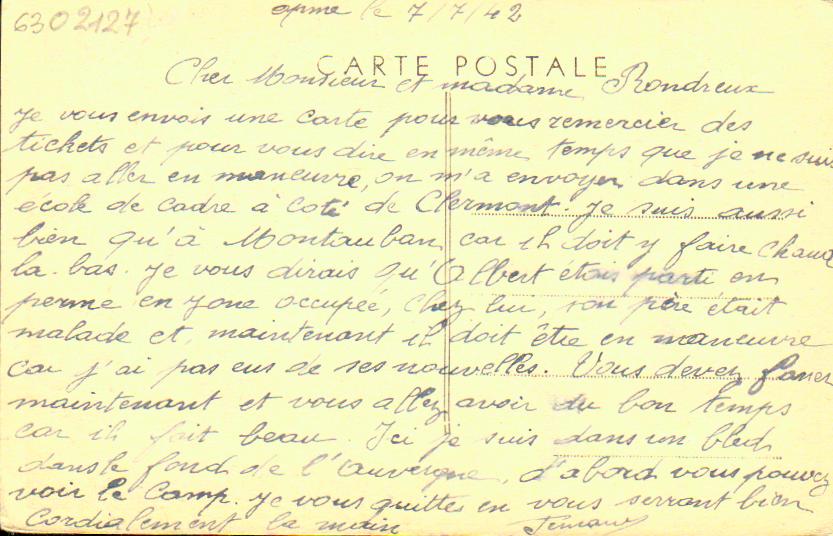 6302127
opme le 7/7/42
CARTE POSTALE
Cher Monsieur et madame Rondreux
Je vous envois une carte pour vous remercier des
tickets et pour vous dire en même temps que je ne suis
pas aller en manœuvre, on m'a envoyer dans une
école de cadre à coté de Clermont. Je suis aussi
bien qu'à Montauban, car il doit y faire chaud
la-bas. Je vous dirais qu'Albert étais parti en
perme en zone occupée, chez lui, son père était
malade et maintenant il doit être en maneuvre
car j'ai pas eus de ses nouvelles. Vous devez faner
maintenant et vous allez avoir du bon temps
car il fait beau. Ici je suis dans un bled
dans le fond de l'Auvergne, d'abord vous pouvez
voir le camp. Je vous quittes en vous serrant bien
Cordialement la main